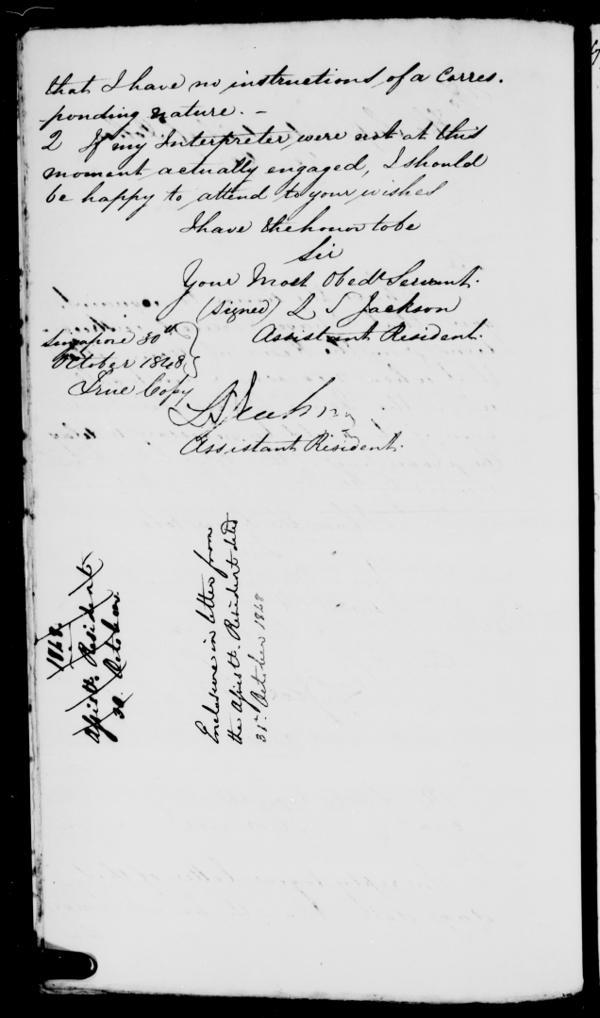 that I have no instructions of a Corres-
ponding nature. -
2 If my Interpreter were not at this
moment actually engaged, I should
be happy to attend to your wishes
I have the honor to be
Sir
Your Most Obedt Servant.
(Signed) L S Jackson
Assistant Resident.
Singapore 30th
October 1848
True Copy
L S Jackson
Assistant Resident.
1848.
Assistt. Resident
31. October.
Enclosure in letter from
the Assistt. Resident dated
31st October 1848